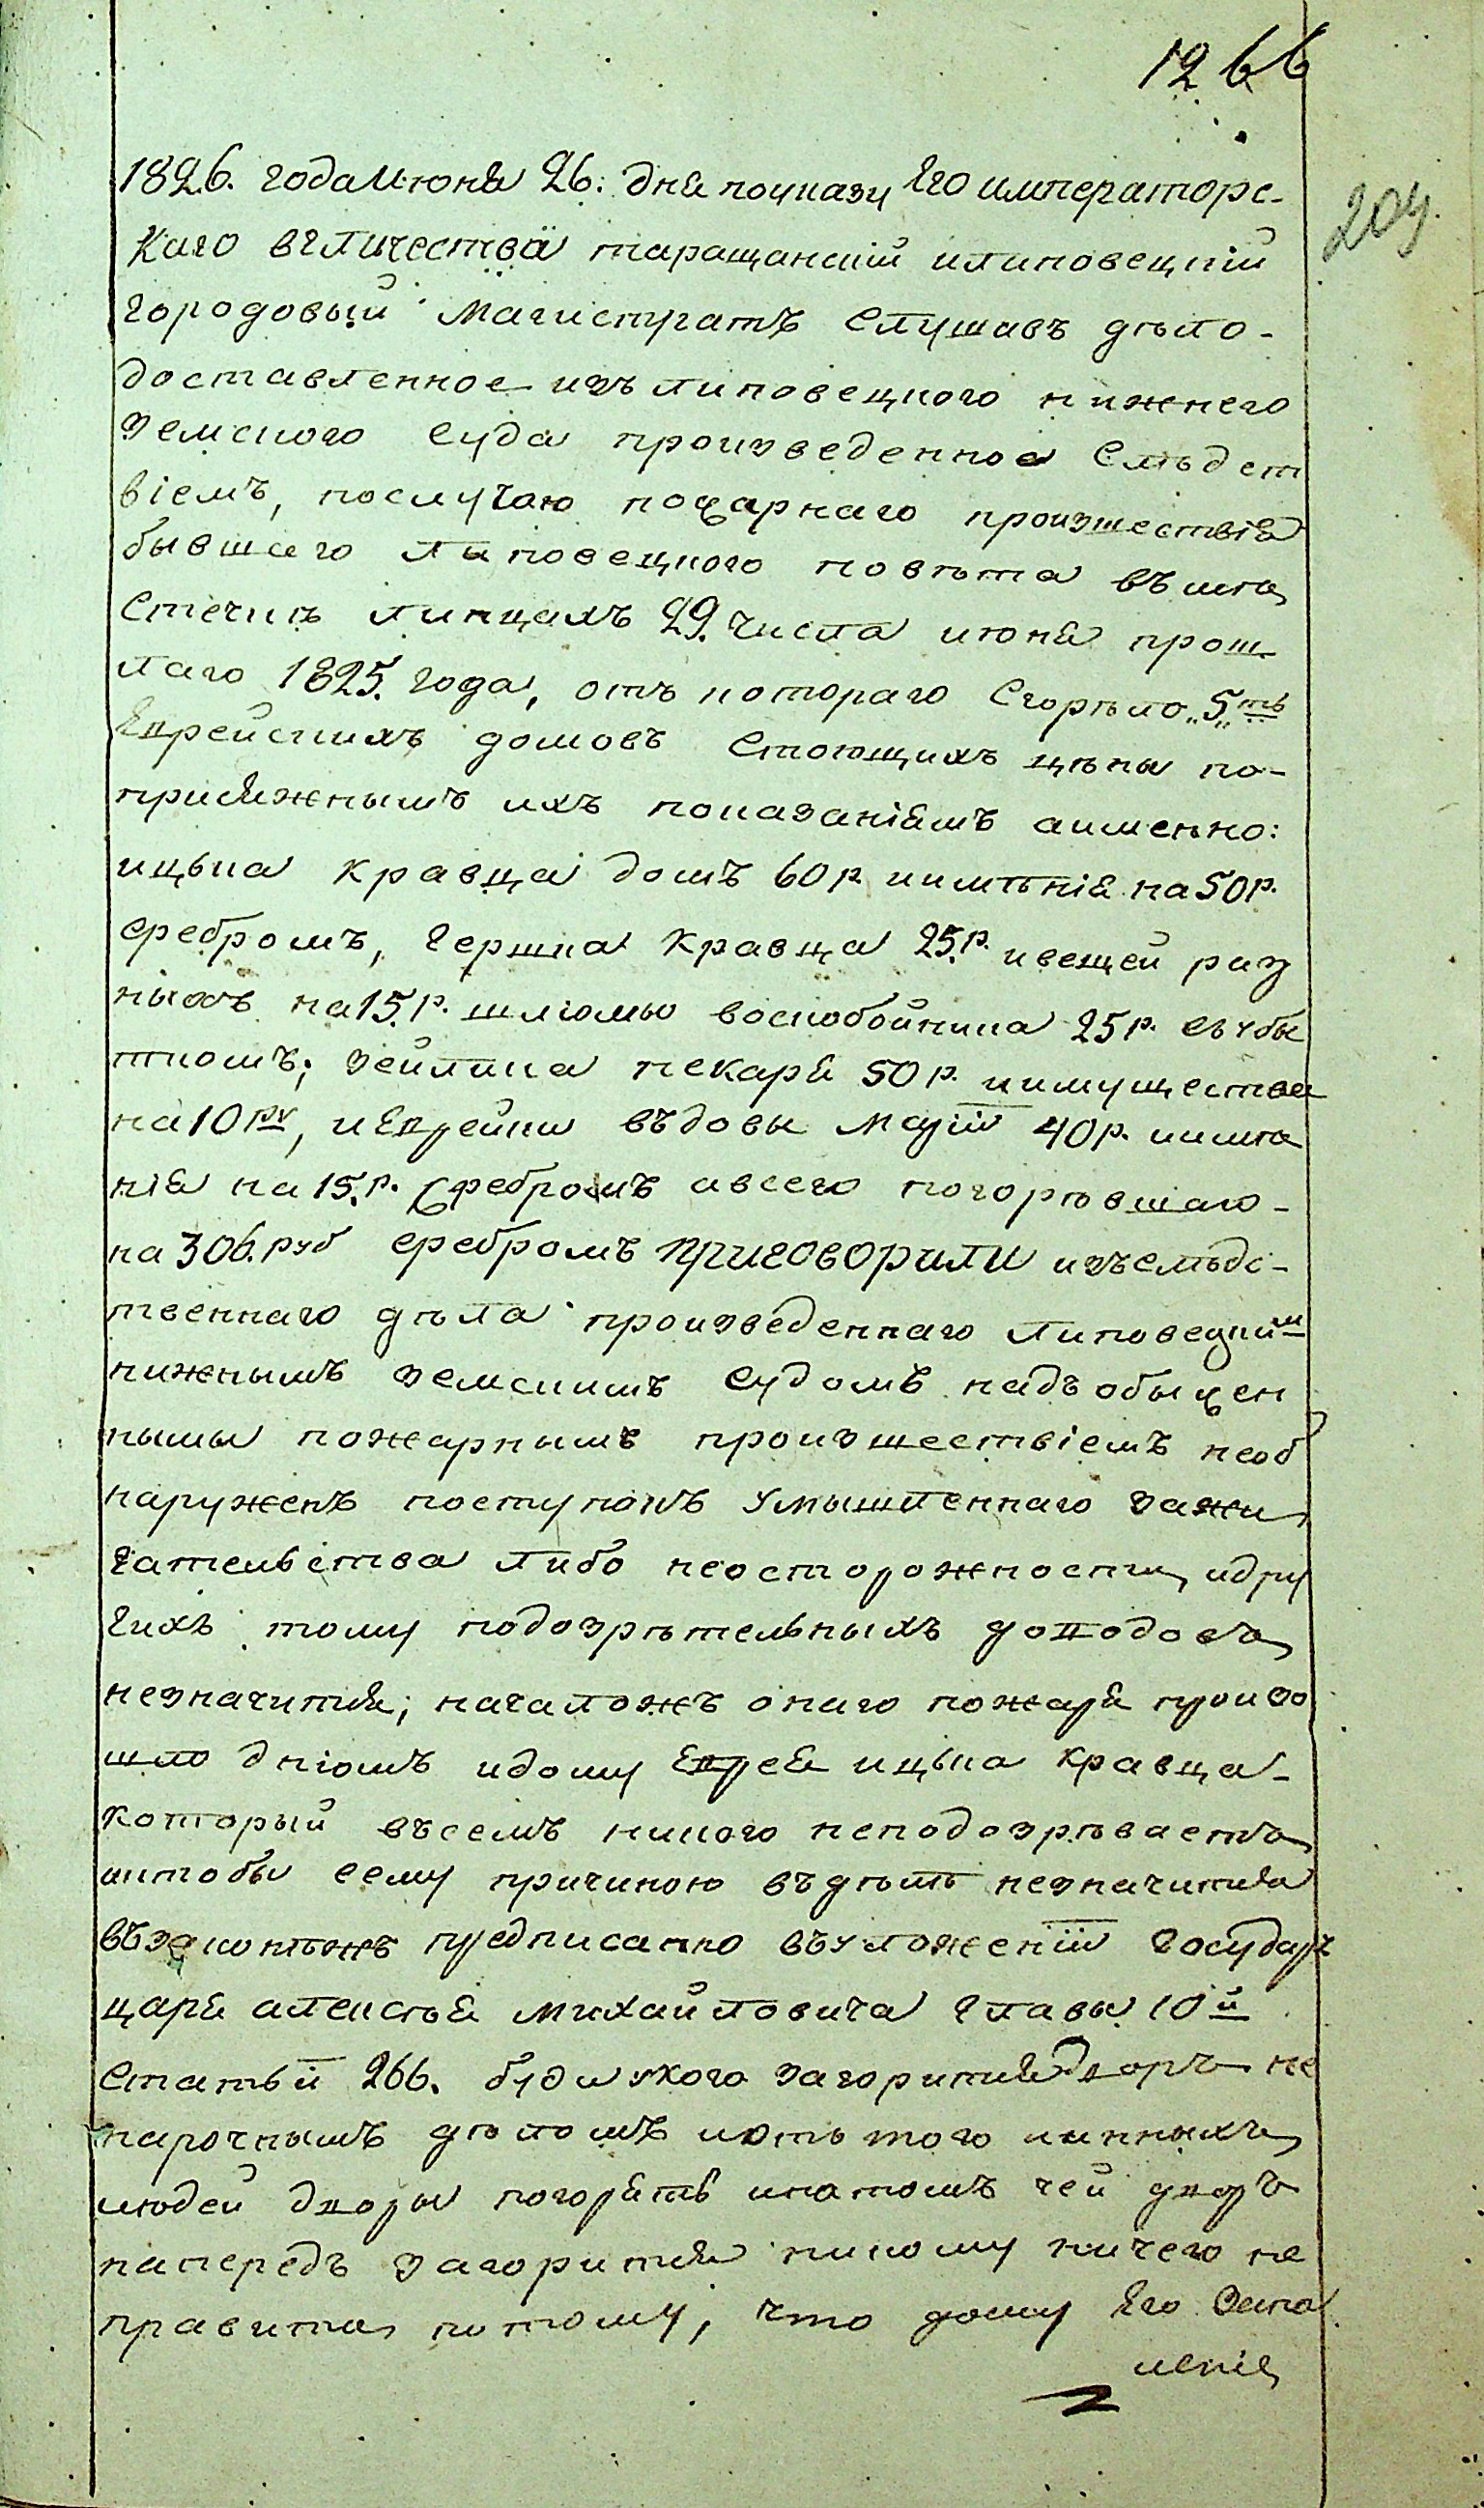 1266
204.
1826. года Июня 26: дня поуказу Его императорс-
каго величества таращанскій илиповецкій
городовый Магистратъ Слушавъ дѣло-
доставленное изъ липовецкого нижнего
Земского Суда произведенное Слѣдст
віемъ, послучаю пожарнаго произшествія
бывшего липовецкого повѣта въмѣ
стечкѣ линцахъ 29. числа июня прош
лаго 1825. года, отъ котораго Сгорѣло „5„ть
Еврейскихъ домовъ Стоющихъ цѣны по-
присяжнымъ ихъ показаніямъ аименно:
ицька кравца домъ 60 р. иимѣнія на 50 р.
сребромъ, Гершка Кравца 25. р. ивещей раз
ныхъ на 15. р. шлюмы воскобойника 25 р. съ убы
ткомъ; Зейлика пекаря 50 р. иимущества
на 10 ру, иЕврейки въдовы Маріи 40 р. иимѣ
нія на 15. р. Сребромъ авсего погорѣвшаго-
на 306. руб сребромъ приговорили изъслѣдс-
твеннаго дѣла произведеннаго липовецкимъ
нижнымъ земскимъ Судомъ надъ обыцен
нымы пожарнымъ произшествіемъ необ
наруженъ поступокъ умышленнаго зажи
гательства либо неосторожности, идру
гихъ тому подозрѣтельныхъ доводовъ
незначится; началожъ онаго пожара произо
шло днюмъ идому Еврея ицька кравца-
который въсемъ никого неподозрѣваетъ
ктобы сему причиною въдѣлѣ незначится
възаконѣжъ предписанно въуложеніи Государя
царя алексѣя михайловича главы 10й
Статьи 266. буди укого загорится дворъ не
нарочнымъ дѣломъ иотъ того иинныхъ
людей дворы погорятъ инатомъ чей дворъ
напередъ загорится никому ничего не
правити потому, что дому Его Запа
леніе